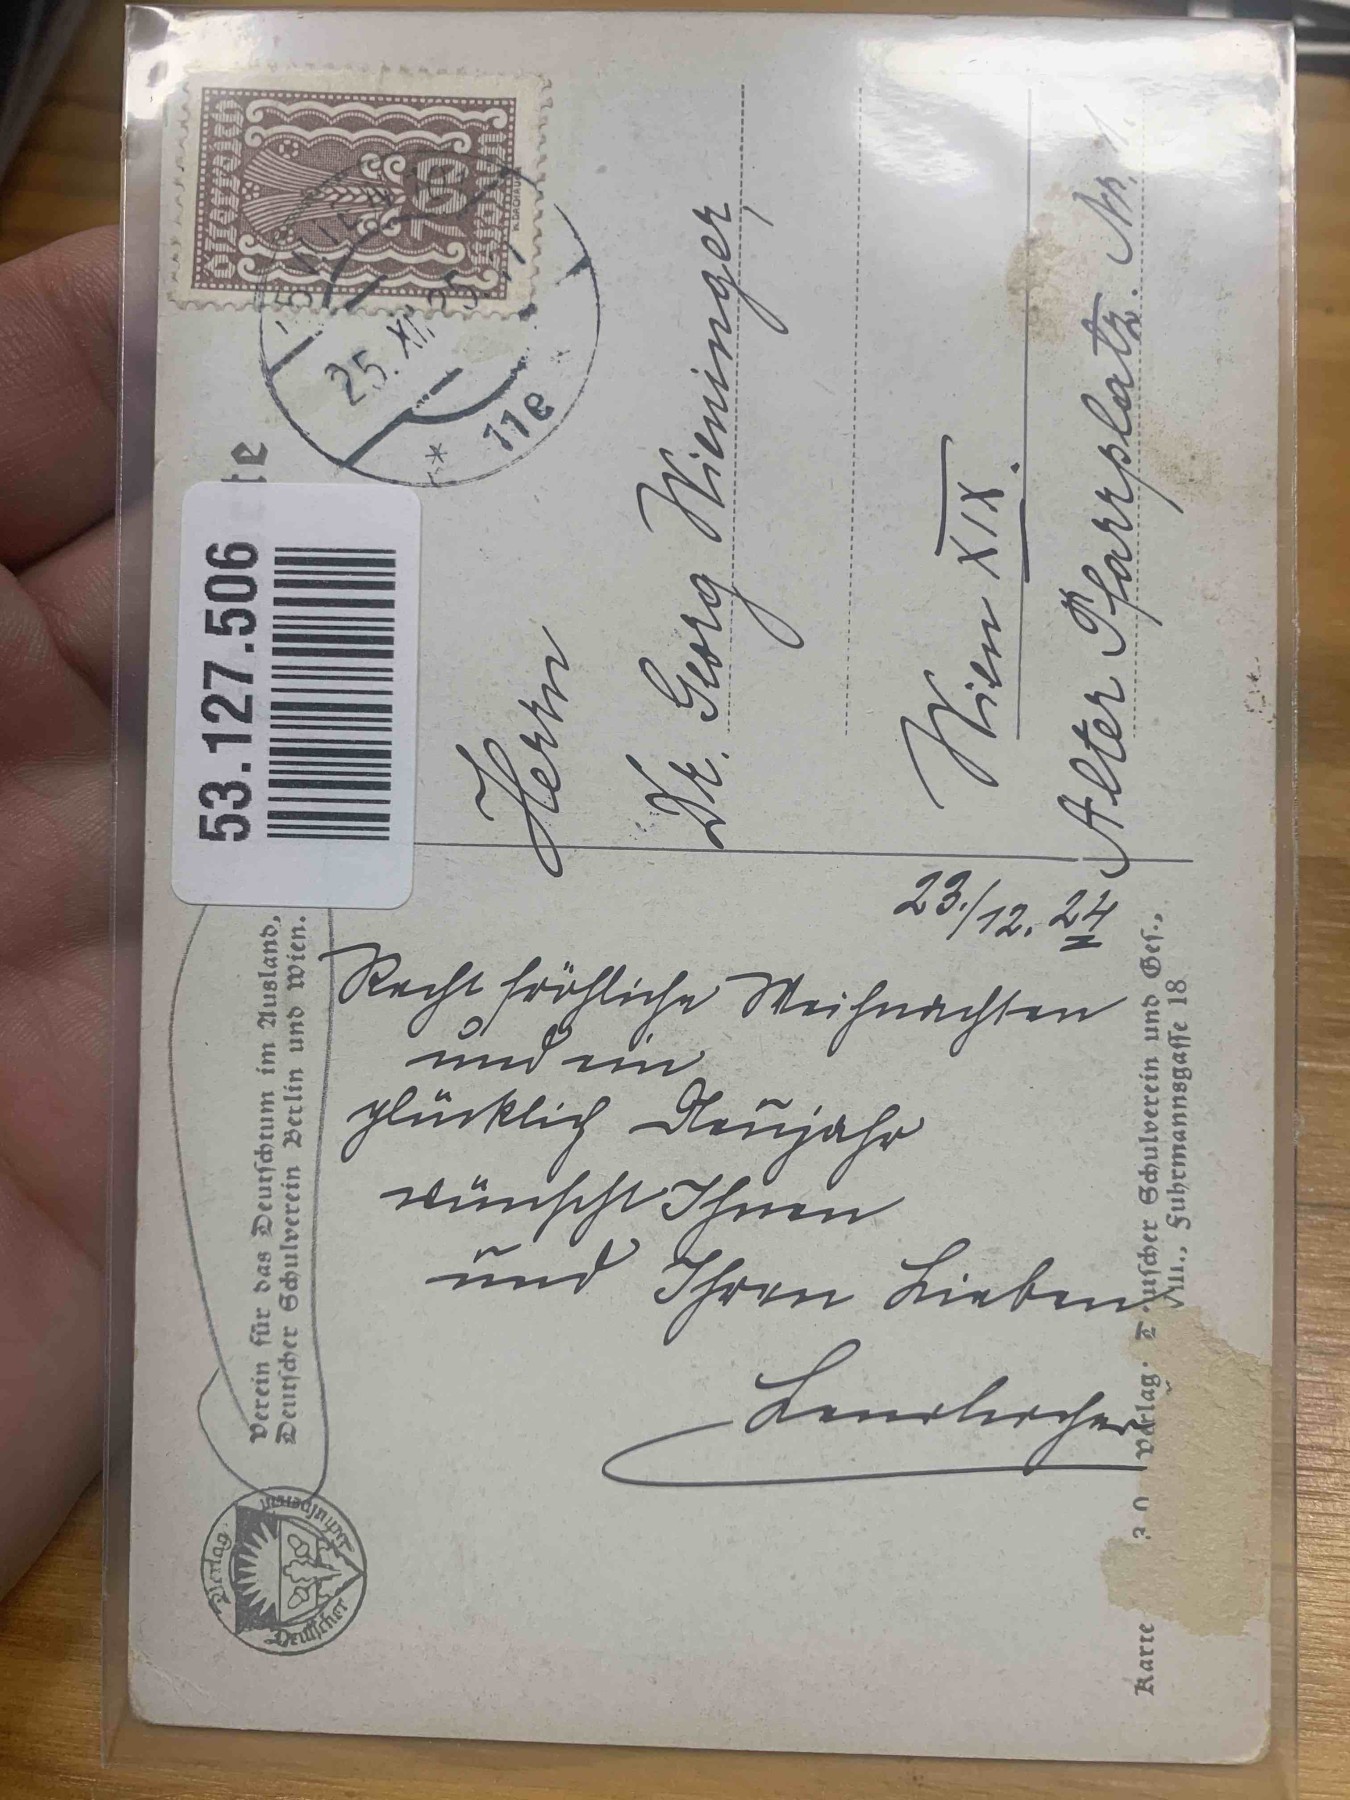 Verein für das Deutschtum im Ausland,
Deutscher Schulverein Berlin und Wien.
Verlag
Deutscher Schulverein
23./12. 24
Recht fröhliche Weihnachten
und ein
glücklich Neujahr
wünscht Ihnen
und Ihren Lieben
Karte
Verlag: Deutscher Schulverein und Ges.,
VIII., Fuhrmannsgasse 18
53.127.506
te
25. XII
11e
Herrn
Dr. Georg Wieninger,
Wien XIX.
Alter Pfarrplatz. Nr. 1.